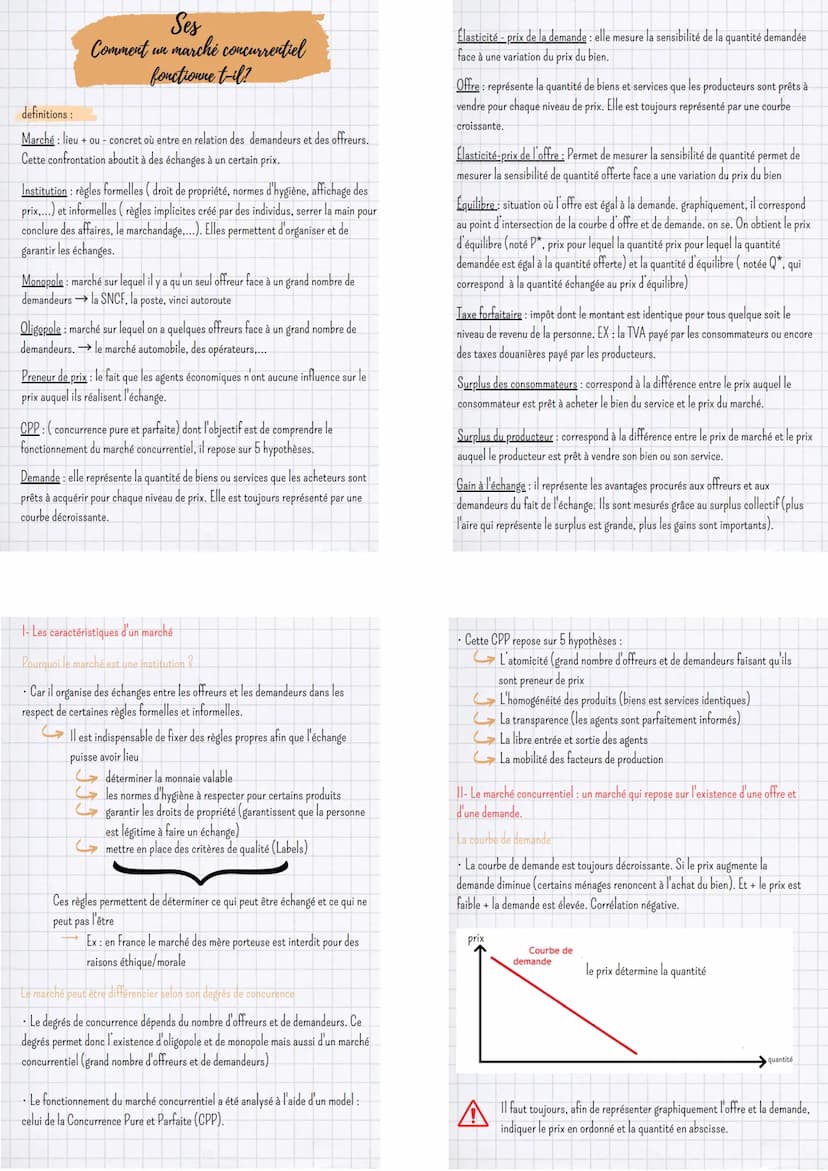 Ses
Comment un marché concurrentiel
fonctionne t-il?
definitions :
Marché : lieu + ou - concret où entre en relation des demandeurs et des offreurs.
Cette confrontation aboutit à des échanges à un certain prix.
Institution : règles formelles ( droit de propriété, normes d'hygiène, affichage des
prix,...) et informelles ( règles implicites créé par des individus, serrer la main pour
conclure des affaires, le marchandage,...). Elles permettent d'organiser et de
garantir les échanges.
Monopole : marché sur lequel il y a qu'un seul offreur face à un grand nombre de
demandeurs → la SNCF, la poste, vinci autoroute
Oligopole : marché sur lequel on a quelques offreurs face à un grand nombre de
demandeurs. → le marché automobile, des opérateurs,...
Preneur de prix : le fait que les agents économiques n'ont aucune influence sur le
prix auquel ils réalisent l'échange.
CPP : ( concurrence pure et parfaite) dont l'objectif est de comprendre le
fonctionnement du marché concurrentiel, il repose sur 5 hypothèses.
Demande : elle représente la quantité de biens ou services que les acheteurs sont
prêts à acquérir pour chaque niveau de prix. Elle est toujours représenté par une
courbe décroissante.
Élasticité - prix de la demande : elle mesure la sensibilité de la quantité demandée
face à une variation du prix du bien.
Offre : représente la quantité de biens et services que les producteurs sont prêts à
vendre pour chaque niveau de prix. Elle est toujours représenté par une courbe
croissante.
Élasticité-prix de l'offre : Permet de mesurer la sensibilité de quantité permet de
mesurer la sensibilité de quantité offerte face a une variation du prix du bien
Équilibre : situation où l'offre est égal à la demande. graphiquement, il correspond
au point d'intersection de la courbe d'offre et de demande. on se. On obtient le prix
d'équilibre (noté P*, prix pour lequel la quantité prix pour lequel la quantité
demandée est égal à la quantité offerte) et la quantité d'équilibre ( notée Q*, qui
correspond à la quantité échangée au prix d'équilibre)
Taxe forfaitaire : impôt dont le montant est identique pour tous quelque soit le
niveau de revenu de la personne. EX : la TVA payé par les consommateurs ou encore
des taxes douanières payé par les producteurs.
Surplus des consommateurs : correspond à la différence entre le prix auquel le
consommateur est prêt à acheter le bien du service et le prix du marché.
Surplus du producteur : correspond à la différence entre le prix de marché et le prix
auquel le producteur est prêt à vendre son bien ou son service.
Gain à l'échange : il représente les avantages procurés aux offreurs et aux
demandeurs du fait de l'échange. Ils sont mesurés grâce au surplus collectif (plus
l'aire qui représente le surplus est grande, plus les gains sont importants).
I- Les caractéristiques d'un marché
Pourquoi le marché est une institution ?
· Car il organise des échanges entre les offreurs et les demandeurs dans les
respect de certaines règles formelles et informelles.
Il est indispensable de fixer des règles propres afin que l'échange
puisse avoir lieu
déterminer la monnaie valable
les normes d'hygiène à respecter pour certains produits
garantir les droits de propriété (garantissent que la personne
est légitime à faire un échange)
mettre en place des critères de qualité (Labels)
Ces règles permettent de déterminer ce qui peut être échangé et ce qui ne
peut pas l'être
→ Ex : en France le marché des mère porteuse est interdit pour des
raisons éthique/morale
Le marché peut être différencier selon son degrés de concurence
· Le degrés de concurrence dépends du nombre d'offreurs et de demandeurs. Ce
degrés permet donc l'existence d'oligopole et de monopole mais aussi d'un marché
concurrentiel (grand nombre d'offreurs et de demandeurs)
· Le fonctionnement du marché concurrentiel a été analysé à l'aide d'un model :
celui de la Concurrence Pure et Parfaite (CPP).
· Cette CPP repose sur 5 hypothèses :
L'atomicité (grand nombre d'offreurs et de demandeurs faisant qu'ils
sont preneur de prix
L'homogénéité des produits (biens est services identiques)
La transparence (les agents sont parfaitement informés)
La libre entrée et sortie des agents
La mobilité des facteurs de production
II- Le marché concurrentiel : un marché qui repose sur l'existence d'une offre et
d'une demande.
La courbe de demande
· La courbe de demande est toujours décroissante. Si le prix augmente la
demande diminue (certains ménages renoncent à l'achat du bien). Et + le prix est
faible + la demande est élevée. Corrélation négative.
prix
Courbe de
demande
le prix détermine la quantité
quantité
Il faut toujours, afin de représenter graphiquement l'offre et la demande,
indiquer le prix en ordonné et la quantité en abscisse.